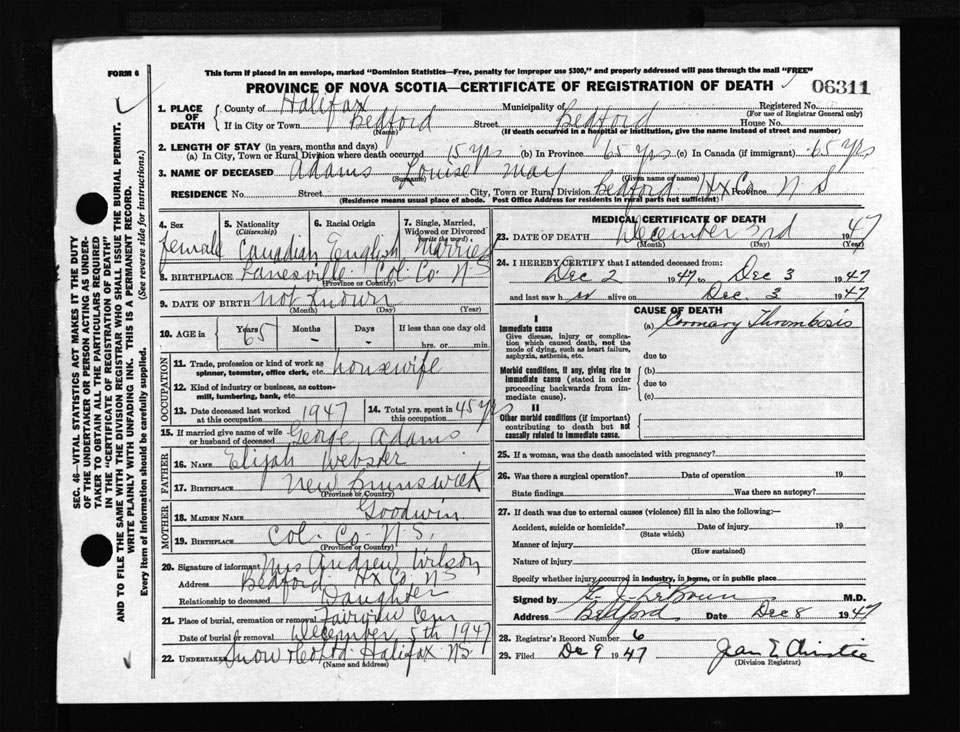 FORM 6
This form if placed in an envelope, marked "Dominion Statistics—Free, penalty for improper use $300," and properly addressed will pass through the mail "FREE"
PROVINCE OF NOVA SCOTIA—CERTIFICATE OF REGISTRATION OF DEATH
06311
1. PLACE OF DEATH
County of Halifax Municipality of Bedford Registered No.
(For use of Registrar General only)
If in City or Town Bedford Street House No.
(Name) (If death occurred in a hospital or institution, give the name instead of street and number)
2. LENGTH OF STAY (in years, months and days)
(a) In City, Town or Rural Division where death occurred 15 yrs (b) In Province 65 yrs (c) In Canada (if immigrant) 65 yrs
3. NAME OF DECEASED Adams Louise May
(Surname) (Given name or names)
RESIDENCE No. Street City, Town or Rural Division Bedford Hx Co Province N S
(Residence means usual place of abode. Post Office Address for Residents in rural parts not sufficient)
SEC. 46—VITAL STATISTICS ACT MAKES IT THE DUTY
OF THE UNDERTAKER OR PERSON ACTING AS UNDER-
TAKER TO OBTAIN ALL THE PARTICULARS REQUIRED
IN THE "CERTIFICATE OF REGISTRATION OF DEATH"
AND TO FILE THE SAME WITH THE DIVISION REGISTRAR WHO SHALL ISSUE THE BURIAL PERMIT.
WRITE PLAINLY WITH UNFADING INK. THIS IS A PERMANENT RECORD.
Every item of Information should be carefully supplied. (See reverse side for instructions.)
4. Sex
female
5. Nationality
(Citizenship)
Canadian
6. Racial Origin
English
7. Single, Married,
Widowed or Divorced
(write the word)
Married
8. BIRTHPLACE Lanesville Col. Co. N S
(Province or Country)
9. DATE OF BIRTH not known
(Month) (Day) (Year)
10. AGE in Years 65 Months - Days - If less than one day old
hrs. or min.
OCCUPATION
11. Trade, profession or kind of work as
spinner, teamster, office clerk, etc. housewife
12. Kind of industry or business, as cotton-
mill, lumbering, bank, etc.
13. Date deceased last worked
at this occupation 1947
14. Total yrs. spent in
this occupation 45 yrs
15. If married give name of wife
or husband of deceased George Adams
FATHER
16. NAME Elijah Webster
17. BIRTHPLACE New Brunswick
(Province or Country)
MOTHER
18. MAIDEN NAME Goodwin
19. BIRTHPLACE Col. Co. N.S.
(Province or Country)
20. Signature of informant Mrs Andrew Wilson
Address Bedford Hx Co. NS
Relationship to deceased Daughter
21. Place of burial, cremation or removal Fairview Cem
Date of burial or removal December 5th 1947
22. Undertaker Snow & Co Ltd. Halifax N.S.
(Name and address)
MEDICAL CERTIFICATE OF DEATH
23. DATE OF DEATH December 3rd 1947
(Month) (Day) (Year)
24. I HEREBY CERTIFY that I attended deceased from:
Dec 2 1947 to Dec 3 1947
and last saw her alive on Dec. 3 1947
CAUSE OF DEATH
I
Immediate cause
Give disease, injury or complica-
tion which caused death, not the
mode of dying, such as heart failure,
asphyxia, asthenia, etc.
(a) Coronary Thrombosis
due to
Morbid conditions, if any, giving rise to
immediate cause (stated in order
proceeding backwards from im-
mediate cause).
(b)
due to
(c)
II
Other morbid conditions (if important)
contributing to death but not
causally related to immediate cause.
25. If a woman, was the death associated with pregnancy?
26. Was there a surgical operation? Date of operation 19
State findings Was there an autopsy?
27. If death was due to external causes (violence) fill in also the following:—
Accident, suicide or homicide? Date of injury 19
(State which)
Manner of injury
(How sustained)
Nature of injury
Specify whether injury occurred in industry, in home, or in public place
Signed by M.D.
Address Bedford Date Dec 8 1947
28. Registrar's Record Number 6
29. Filed Dec 9 1947 Jean E Christie
(Division Registrar)